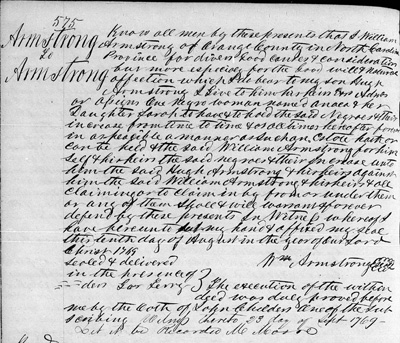 575
Armstrong
to
Armstrong
Know all men by these presents that I William
Armstrong of Orange County in North Carolina
Province for divers good causes & consideration
but more especially for the good will & natural
affection which I do bear to my son Hugh
Armstrong I Give to him heirs Exr Admr
or assigns One Negro woman named & her
Daughter Sarah to have & to hold the said Negroes & their
increase from time to time & at all times hereafter forever
in as peacible a manner as such an Estate hath or
can be held & the said William Armstrong for him
self & heirs the said negroes & their increase unto
him the said Hugh Armstrong & heirs against
him the said William Armstrong & his heirs & all
Claiming or to claim in by from or under them
or any of them Shall & will warrant & forever
defend by these presents In Witness whereof I
have hereunto set my hand & affixed my seal
this tenth day of August in the year of our Lord
Christ 1769
Sealed & delivered Wm Armstrong Seal
in the presence of
The execution of the within
deed was duly proved before
me by the Oath of John Childers one of the Sub
scribing 23 Day of Sept 1769
Let it be Recorded M Moore